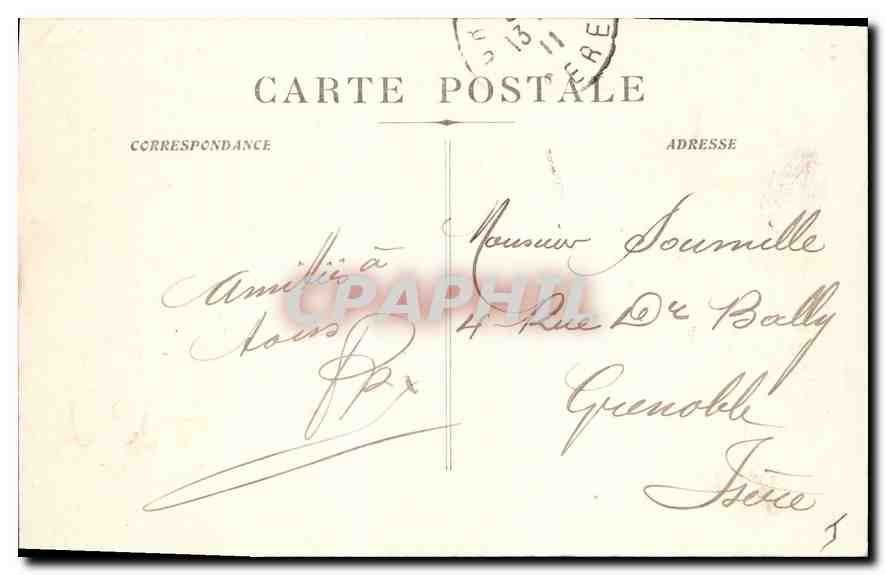 13
11
ERE
CARTE POSTALE
CORRESPONDANCE
ADRESSE
Amitiés à
tous
Monsieur Soumille
4 Rue Dr Bally
Grenoble
Isère
CPAPHIL